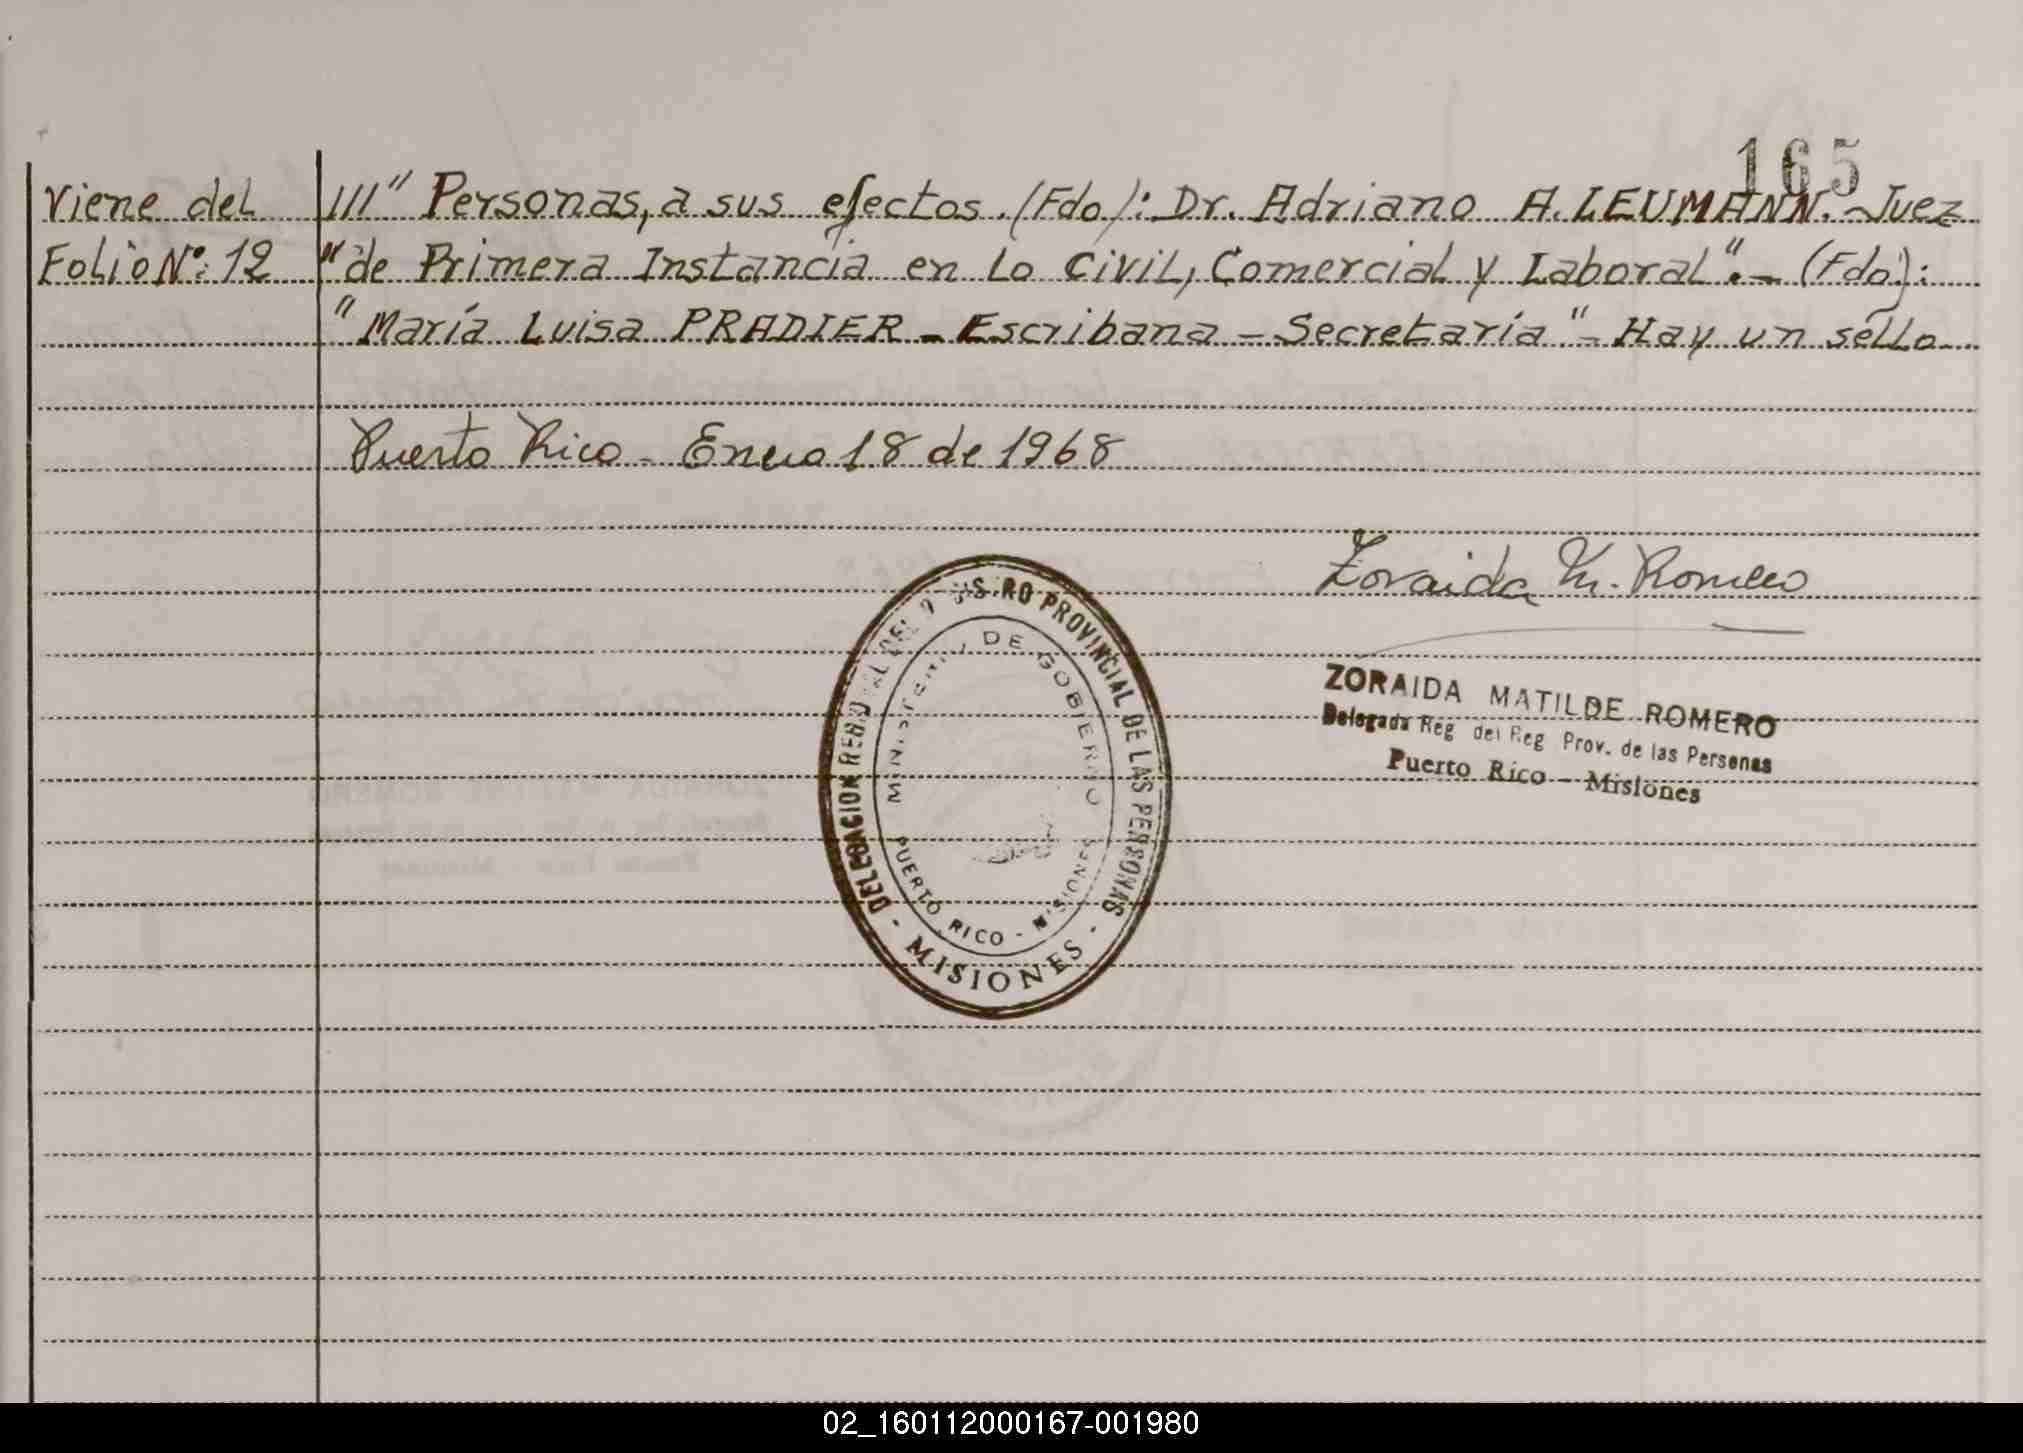 165
Viene del
Folio Nº: 12
III" Personas, a sus efectos. (Fdo): Dr. Adriano A. LEUMANN. - Juez
"de Primera Instancia en Lo Civil, Comercial y Laboral". - (Fdo):
"María Luisa PRADIER - Escribana - Secretaría" - Hay un sello
Puerto Rico - Enero 18 de 1968
Zoraida M. Romero
ZORAIDA MATILDE ROMERO
Delegada Reg del Reg Prov. de las Personas
Puerto Rico - Misiones
PROVINCIAL DE LAS PERSONAS
- MISIONES -
MINISTERIO DE GOBIERNO
PUERTO RICO - MISIONES
02_160112000167-001980